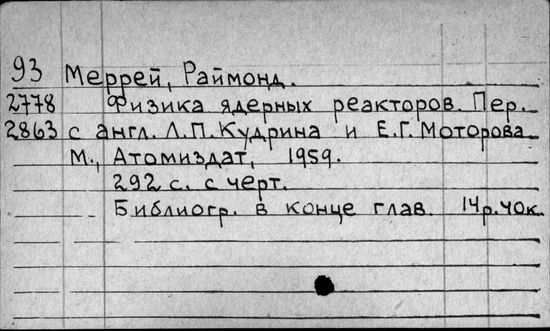 93 Меррей, Раймонд.
2778 Физика ядерных реакторов. Пер.
2863 с англ. Л.П. Кудрина и Е.Г. Моторова
М., Атомиздат, 1959.
292 с. с черт.
Библиогр. в конце глав. 14р.40к.